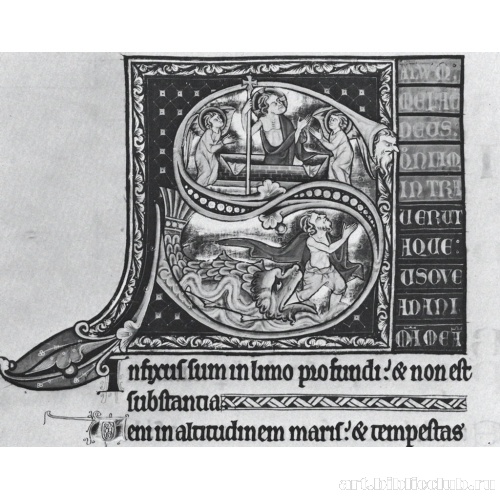 ME FAC
DEUS:
QONIAM
INTRA
UERUT
AQUE:
USQUE
AD ANI
MĀ MEĀ
Infixus sum in limo profundi: & non est
substantia
Veni in altitudinem maris: & tempestas
art.biblioclub.ru